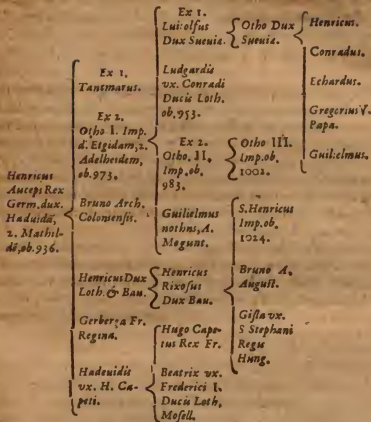 Henricus
Auceps Rex
Germ. dux.
Haduidã,
2. Mathil-
dẽ, ob. 936.
Ex 1.
Tantmarus.
Ex 2.
Otho I. Imp.
d. Elgidam, 2.
Adelheidem,
ob. 973.
Bruno Arch.
Coloniensis.
Henricus Dux
Loth. & Bau.
Gerberga Fr.
Regina.
Haduidis
vx. H. Ca-
peti.
Ex 1.
Luitolfus
Dux Sueuia.
Ludgardis
vx. Conradi
Ducis Loth.
ob. 953.
Ex 2.
Otho. II.
Imp. ob.
983.
Guilielmus
nothus, A.
Mogunt.
Henricus
Rixosus
Dux Bau.
Hugo Cape-
tus Rex Fr.
Beatrix vx.
Frederici I.
Ducis Loth.
Mosell.
Otho Dux
Sueuia.
Otho III.
Imp. ob.
1002.
S. Henricus
Imp. ob.
1024.
Bruno A.
August.
Gisla vx.
S Stephani
Regis
Hung.
Henricus.
Conradus.
Echardus.
Gregorius V.
Papa.
Guilielmus.